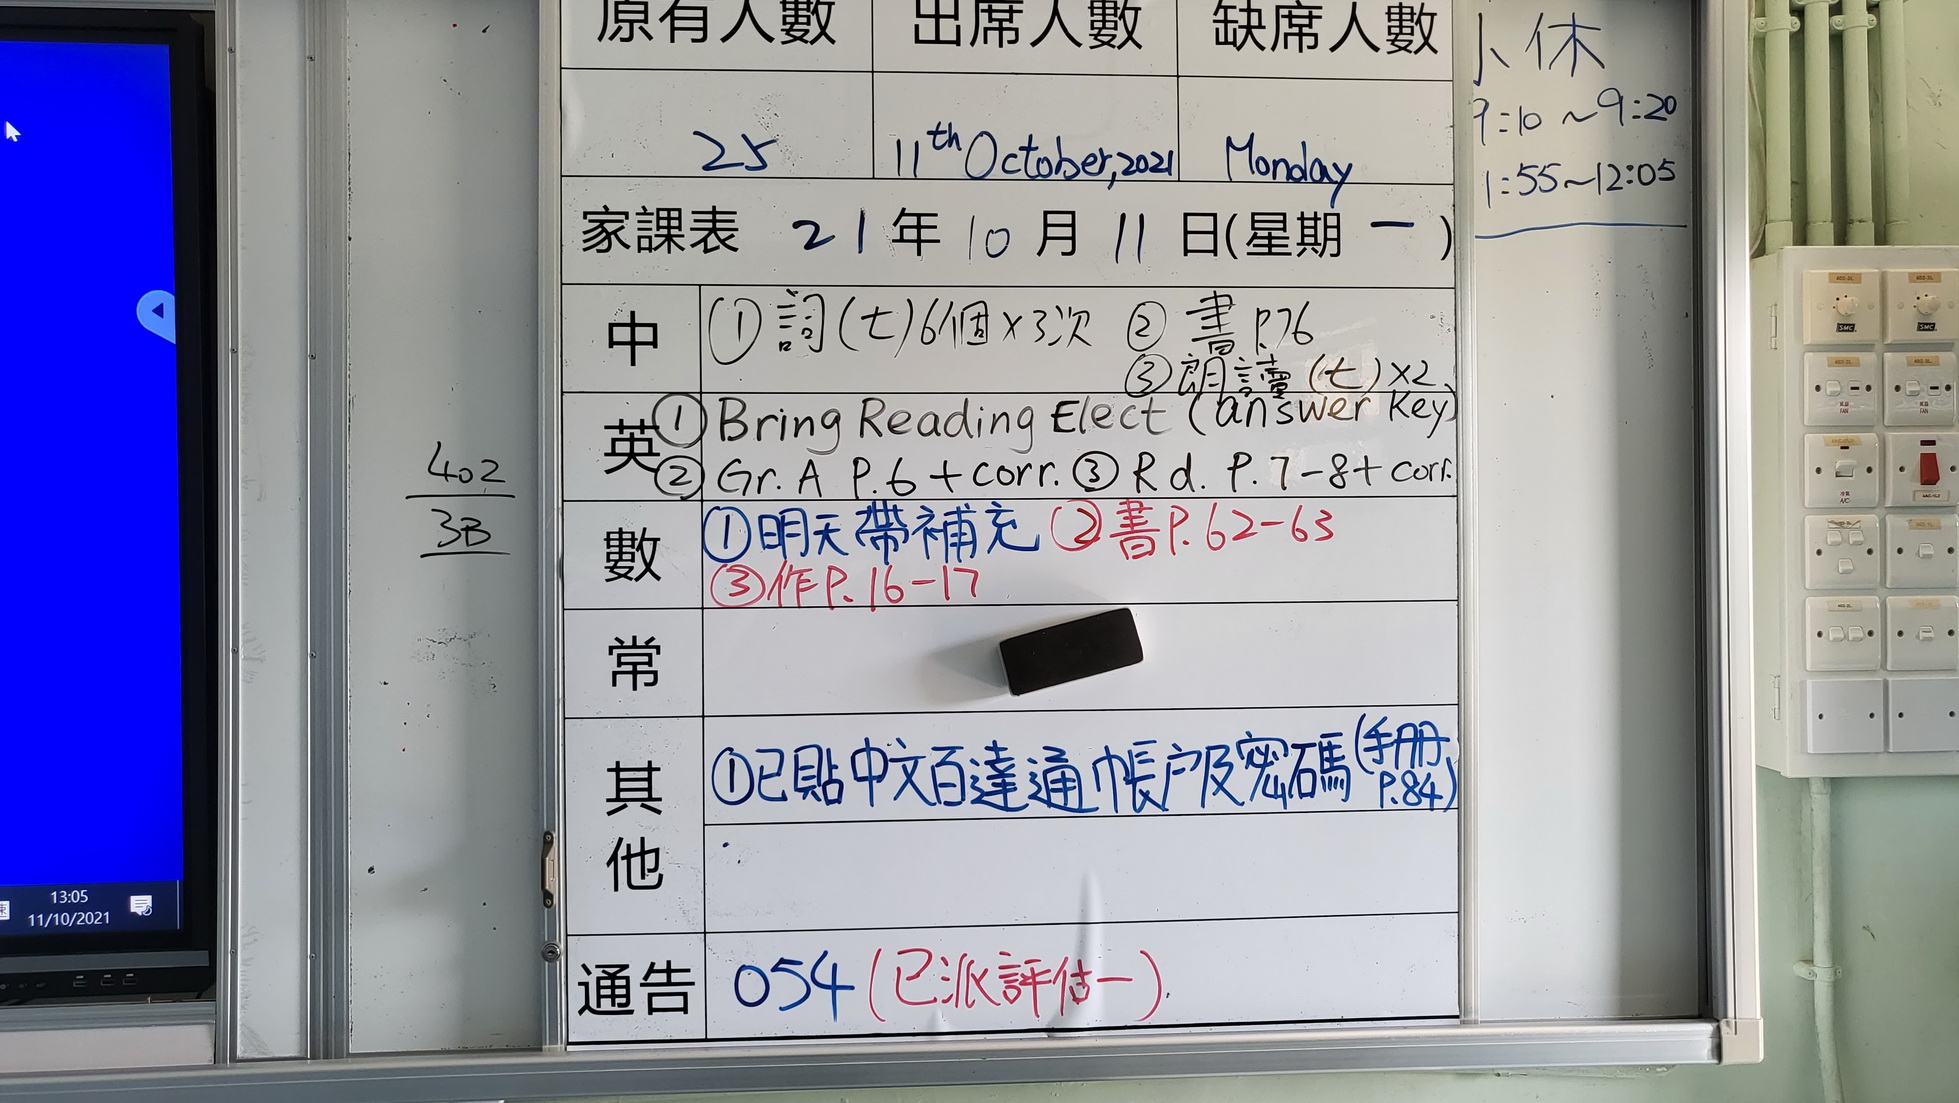 原有人數 出席人數 缺席人數
25 11th October, 2021 Monday
家課表 21年10月11日(星期一)
中 ①詞(七)6個×3次 ②書P.76
③朗讀(七)×2
英 ① Bring Reading Elect (answer key)
② Gr. A P.6 + corr. ③ Rd. P.7-8 + corr.
數 ①明天帶補充 ②書P.62-63
③作P.16-17
常
其他 ①已貼中文百達通帳戶及密碼(手冊
P.84)
通告 054 (已派評估一)
小休
9:10~9:20
1:55~12:05
402
3B
13:05
11/10/2021
SMC
SMC
FAN
FAN
A/C